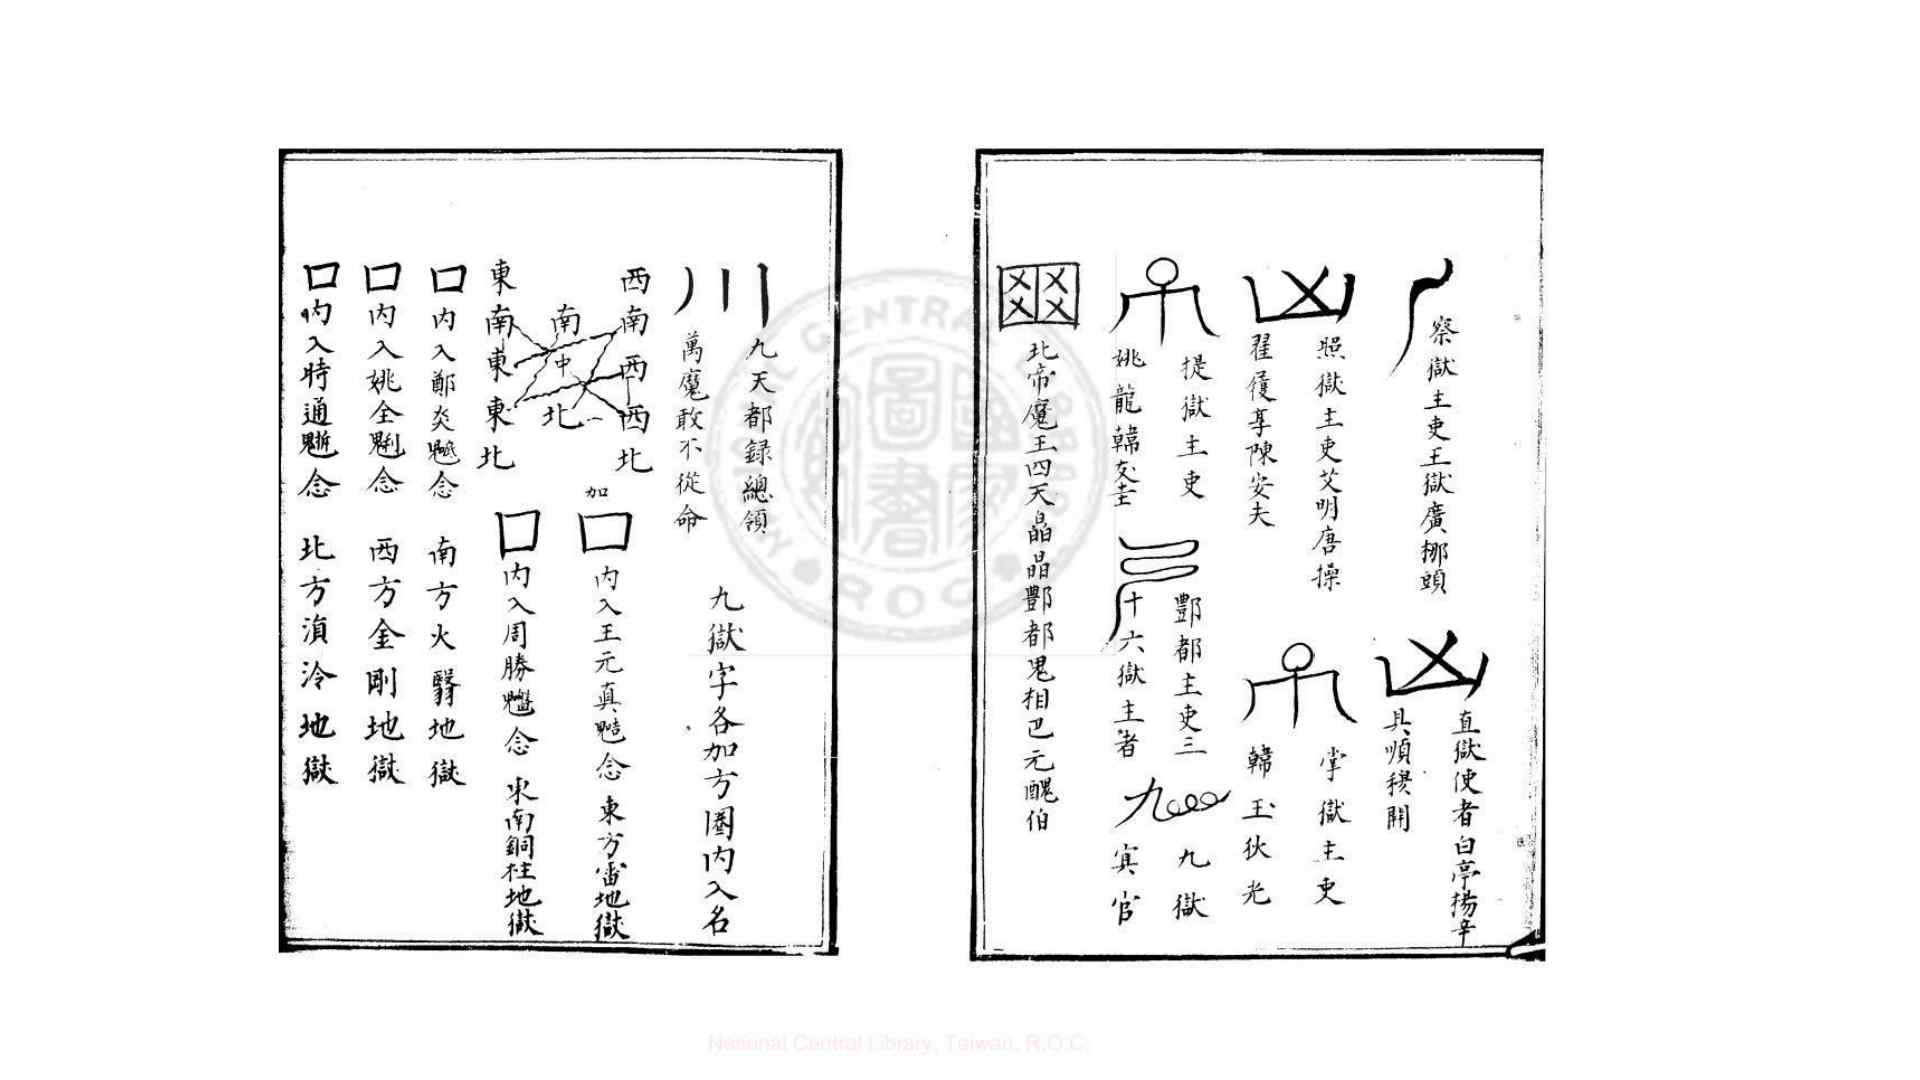 察獄主吏王獄廣挪頭
直獄使者白亭揚辛
具順穆開
照獄主吏艾明唐操
翟履享陳安夫
掌獄主吏
韓玉狄光
提獄主吏
姚龍韓友圭
酆都主吏三
十六獄主者
九獄
冥官
北帝魔王四天晶晶酆都鬼相巴元醜伯
九天都録總領
萬魔敢不從命
九獄字各加方圈内入名
西南西西北
南中北
東南東東北
加
口内入王元真念東方雷地獄
口内入周勝念東南銅柱地獄
口内入鄭炎念南方火翳地獄
口内入姚全念西方金剛地獄
口内入時通念北方湞泠地獄
圖書
NATIONAL CENTRAL LIBRARY R.O.C.
National Central Library, Taiwan, R.O.C.